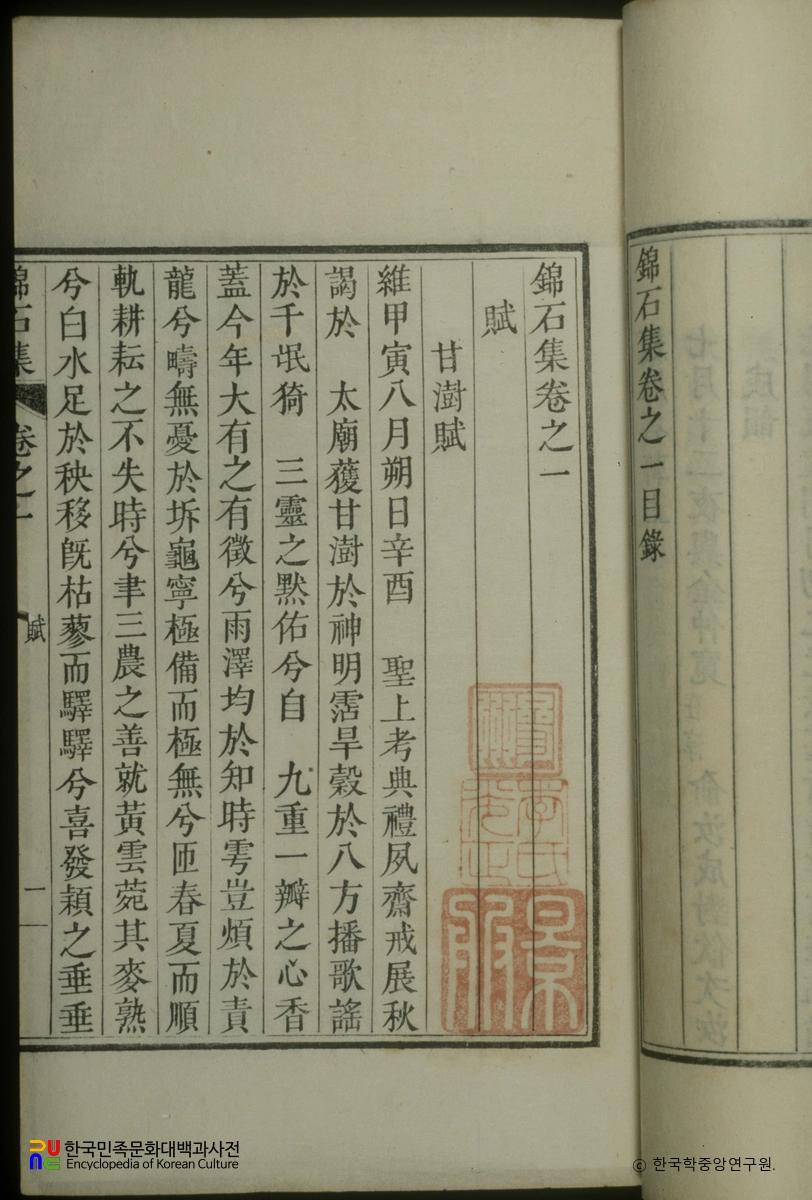 錦石集卷之一目錄
錦石集卷之一
賦
甘澍賦
維甲寅八月朔日辛酉 聖上考典禮夙齋戒展秋
謁於 太廟獲甘澍於神明霑旱穀於八方播歌謠
於千氓猗 三靈之默佑兮自 九重一瓣之心香
蓋今年大有之有徵兮雨澤均於知時雩豈煩於責
龍兮疇無憂於坼龜寧極備而極無兮匝春夏而順
軌耕耘之不失時兮聿三農之善就黃雲菀其麥熟
兮白水足於秧移旣枯蓼而驛驛兮喜發穎之垂垂
錦石集 卷之一 賦 一
한국민족문화대백과사전
Encyclopedia of Korean Culture
ⓒ 한국학중앙연구원.